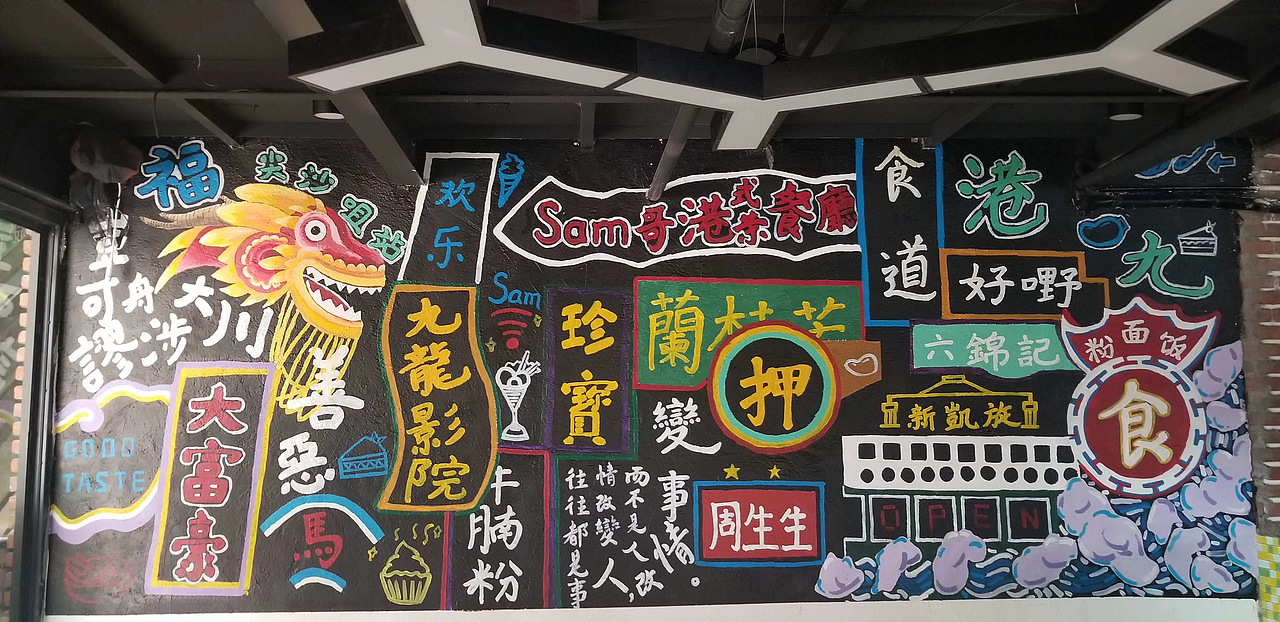 福
尖沙咀站
大川
舟
涉
可
謬
GOOD
TASTE
大富豪
善
惡
馬
欢乐
九龍影院
Sam
Sam哥港式茶餐廳
珍寶
牛腩粉
蘭桂芳
押
變
事情。
而不是人,改
情改變人
往往都是事
周生生
食道
港
九
好嘢
六錦記
新凱旋
OPEN
粉面饭
食